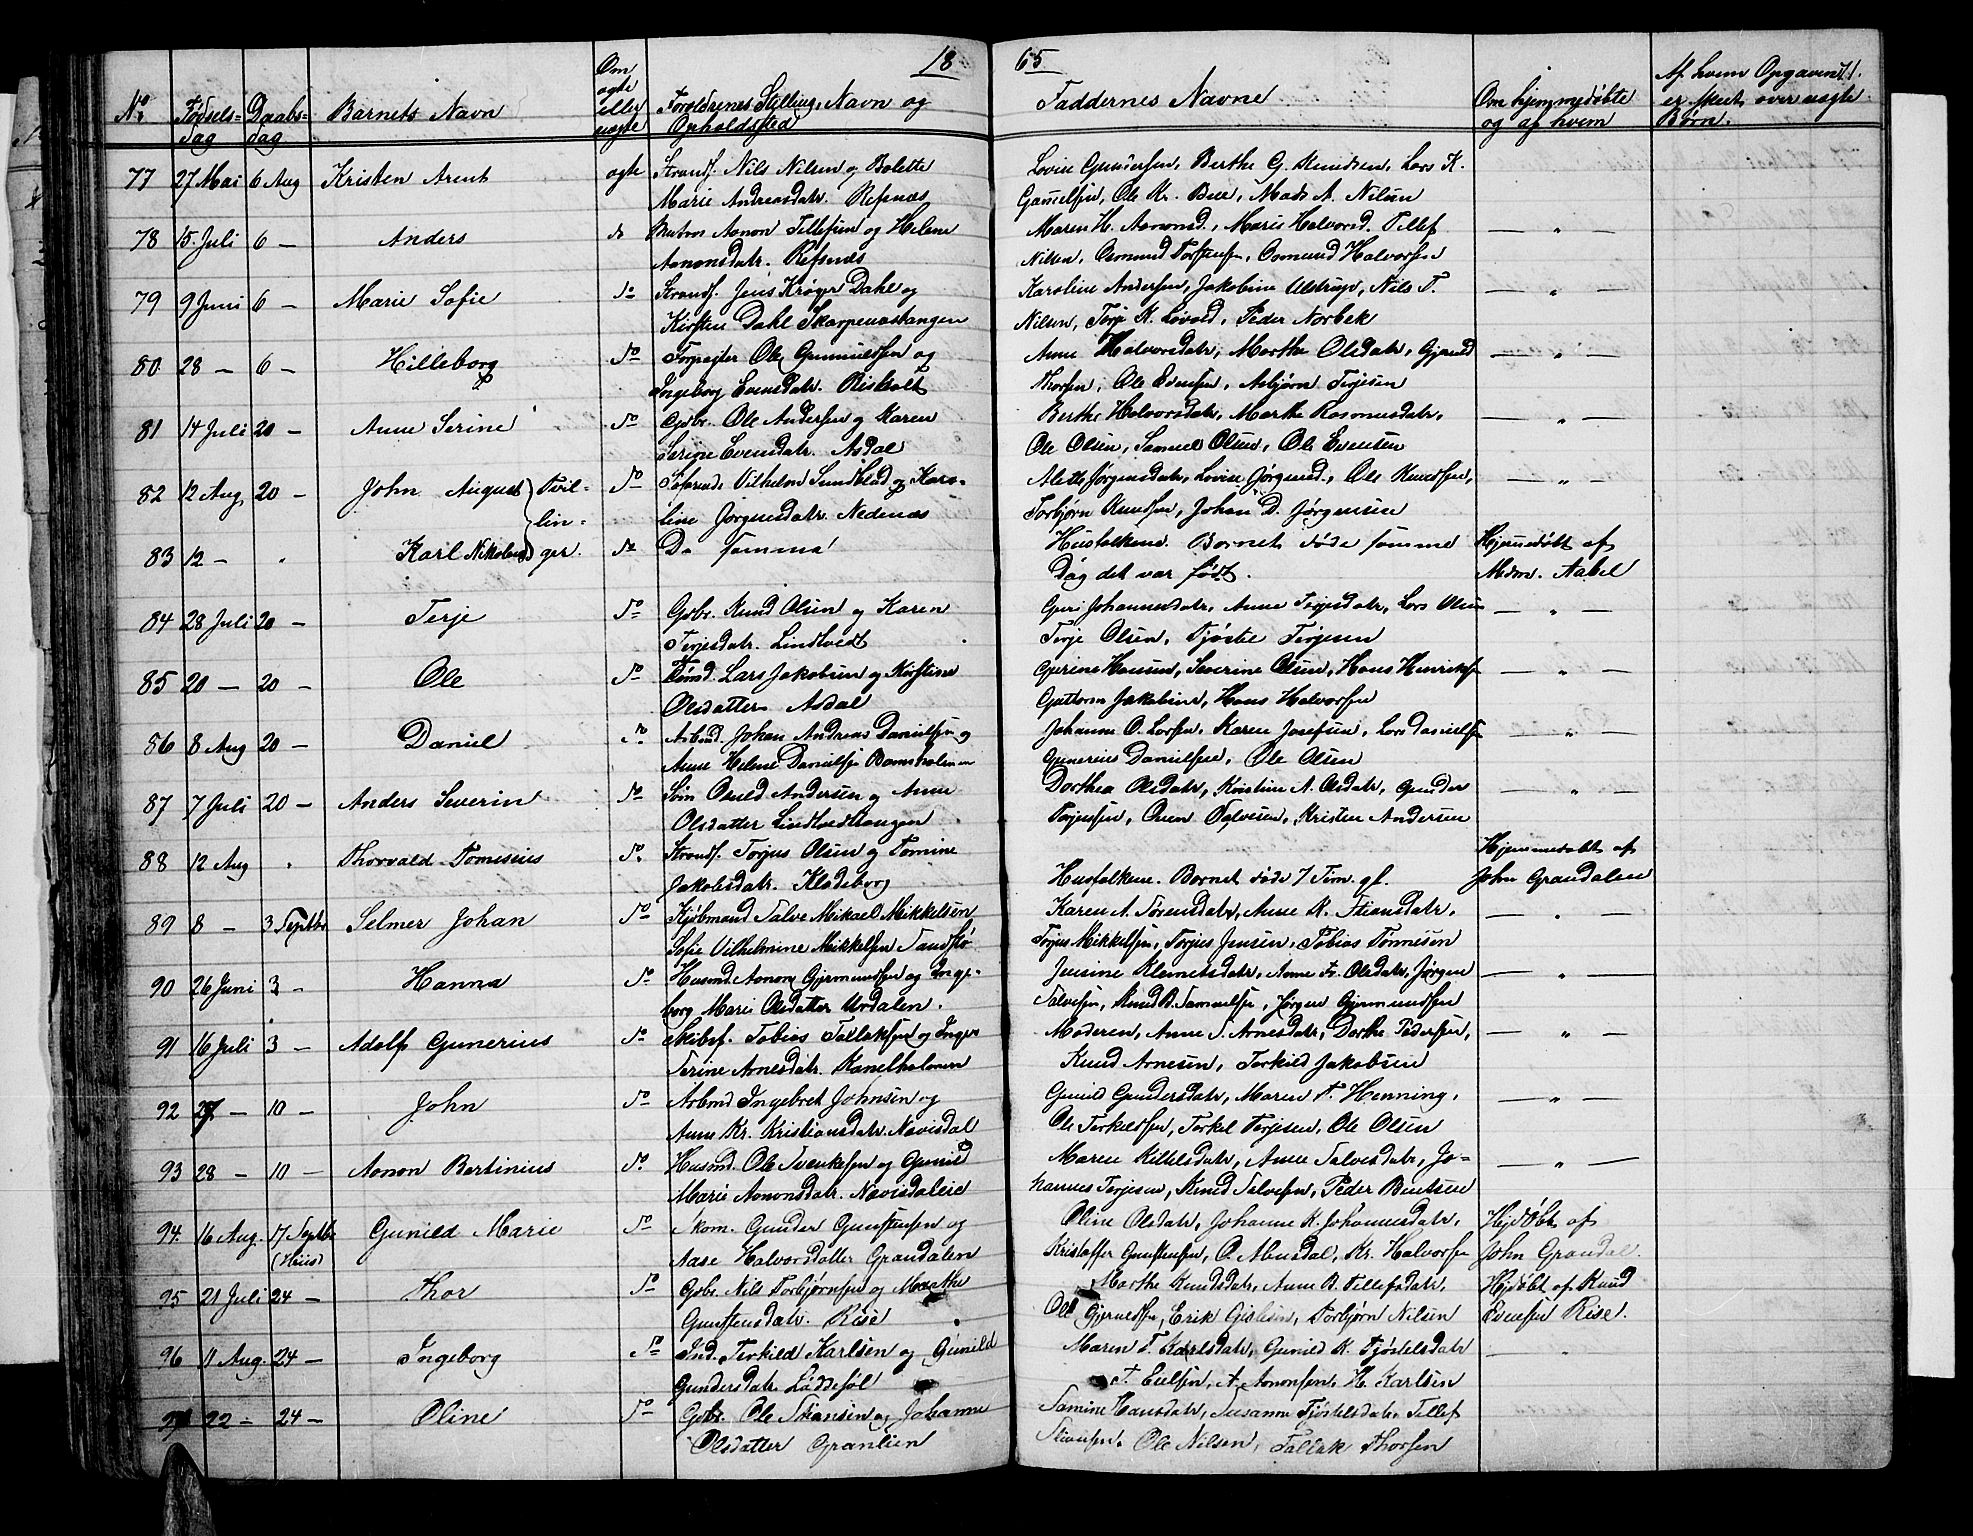 18 65
No. Fødsels-dag Daabs-dag Barnets Navn Om ægte eller uægte Forældrenes Stilling, Navn og Opholdsted Faddernes Navne Om hjemmedøbte og af hvem Af hvem Opgaven er skeet over uægte Børn.
77 27 Mai 6 Aug Kristen Arent ægte Strands. Nils Nilsen og Bolette Lovise Gundersen, Berthe G. Knudsen, Lars K.
Marie Andreasdatr. Refsnæs Ole Kr. Bue, Mads A. Nilsen
78 15 Juli 6 — Anders do Aanon Tellefsen og Helene Maren H. Aanonsd., Maria Halvorsd. Tellef — " —
Aanonsdatr. Refsnæs Nilsen, Osmund Torstensen, Osmund Halvorsen
79 9 Juni 6 — Marie Sofie do Strands. Jens Krøger Dahl og Karoline Andersen, Jakobine Alstrup, Nils T. — " —
Kirsten Dahl Skarpenæstangen Nilsen, Terje K. Løvold, Peder Norbek
80 28 — 6 — Hilleborg do Forpagter Ole Gunnuldsen og Anne Halvorsdatr, Marthe Olsdatr, Gjernuld — " —
Ingeborg Evensdatr. Risholt Thorsen, Ole Evensen, Asbjørn Terjesen
81 14 Juli 20 — Anne Serine do Gbr. Ole Andersen og Karen Berthe Halvorsdatr, Marthe Rasmusdatr, — " —
Serine Evensdatr. Asdal Ole Olsen, Samuel Olsen, Ole Evensen
82 12 Aug 20 — John August Tvil- do Søfarende Vilhelm Sundblad og Karo- Alette Jørgensdatr, Lovise Jørgensd., Ole Knudsen, — " —
lin- line Jørgensdatr. Nedenæs Torbjørn Knudsen, Johan D. Jørgensen
83 12 — " Karl Nikolai ger. do De samme Husfolkene. Barnet døde samme Hjemmedøbt af
Dag det var født. Mdm. Aabel
84 28 Juli 20 — Terje do Gbr. Knud Olsen og Karen Guri Johannesdatr, Anne Terjesdatr, Lars Olsen — " —
Terjesdatr. Lindtveit Terje Olsen, Tjøstel Terjesen
85 20 — 20 — Ole do Tømd. Lars Jakobsen og Kirstine Gjerine Hansen, Severine Olsen, Hans Henriksen — " —
Olsdatter Asdal Guttorm Jakobsen, Hans Halvorsen
86 8 Aug 20 — Daniel do Arbmd. Johan Andreas Danielsen og Johanne O. Larsen, Karen Josefsen, Lars Danielsen — " —
Anne Helene Danielsen Bomsholmen Gunerius Danielsen, Ole Olsen
87 7 Juli 20 — Anders Severin do Søm Osuld Andersen og Anne Dorthea Olsdatr, Kristine A. Olsdatr, Gunder — " —
Olsdatter Lindtvedtangen Terjussen, Onen Salvesen, Kristen Andersen
88 12 Aug " Thorvald Tomesius do Strands. Torjus Olsen og Tomine Hjemmedøbt af
Jakobsdatr. Klodeborg Husfolkene. Barnet døde 7 Tim. gl. John Grandalen
89 8 — 3 Septbr Selmer Johan do Kjøbmand Salve Mikael Mikkelsen Karen A. Sørensdatr, Anne K. Stiansdatr. — " —
Sofie Vilhelmine Mikkelsen Sandflø Torjus Mikkelsen, Torjus Jensen, Tobias Tønnesen
90 26 Juni 3 — Hanna do Husmd. Aanon Gjermundsen og Inge- Jensine Klemetsdatr, Anne Fr. Olsdatr, Jørgen — " —
borg Marie Olsdatter Urdalen. Salvesen, Knud B. Samuelsen, Jørgen Gjermundsen
91 16 Juli 3 — Adolf Gunerius do Skibsf. Tobias Tallaksen og Inger Moderen, Anne S. Arnesdatr, Dorthe Pedersen, — " —
Serine Arnesdatr. Kanelholmen Knud Arnesen, Terkild Jakobsen
92 27 — 10 — John do Arbmd Ingebret Johnsen og Gunild Gundersdatr, Maren T. Henning, — " —
Anne Kr. Kristiansdatr. Navisdal Ole Terkeldsen, Terkel Terjesen, Ole Olsen
93 28 — 10 — Aanon Bertinius do Husmd. Ole Svenkesen og Gunild Maren Kittelsdatr, Anne Salvesdatr, Jo- — " —
Marie Aanonsdatr. Navisdaleie hannes Terjesen, Knud Salvesen, Peder Bentsen
94. 16 Aug. 17 Septbr Gunild Marie do Skom. Gunder Gunstensen og Oline Olsdatr, Johanne K. Johannesdatr. Hjdøbt af
(Hiis) Aase Halvorsdatter Grandalen Kristoffer Gunstensen, O. Almedal, Kr. Halvorsen John Grandal.
95 21 Juli 24 — Thor do Gbr. Nils Torbjørnsen og Marthe Marthe Knudsdatr, Anne B. Tellefsdatr, Hjdøbt af Knud
Gunstensdatr. Rise Ole Gjeruldsen, Erik Gislesen, Torbjørn Nilsen Evensen Rise.
96 11 Aug. 24 — Ingeborg do Ind. Terkild Karlsen og Gunild Maren T. Karlsdatr, Gunild K. Tjøstelsdatr "
Gundersdatr Løddesøl T. Eielsen, A. Aanonsen, H. Karlsen
97 22 — 24 — Oline do Gbr. Ole Stiansen og Johanne Samine Hansdatr, Susanne Tjøstelsdatr. Tellef
Olsdatter Granlien Ole Nilsen, Tallak Thorsen